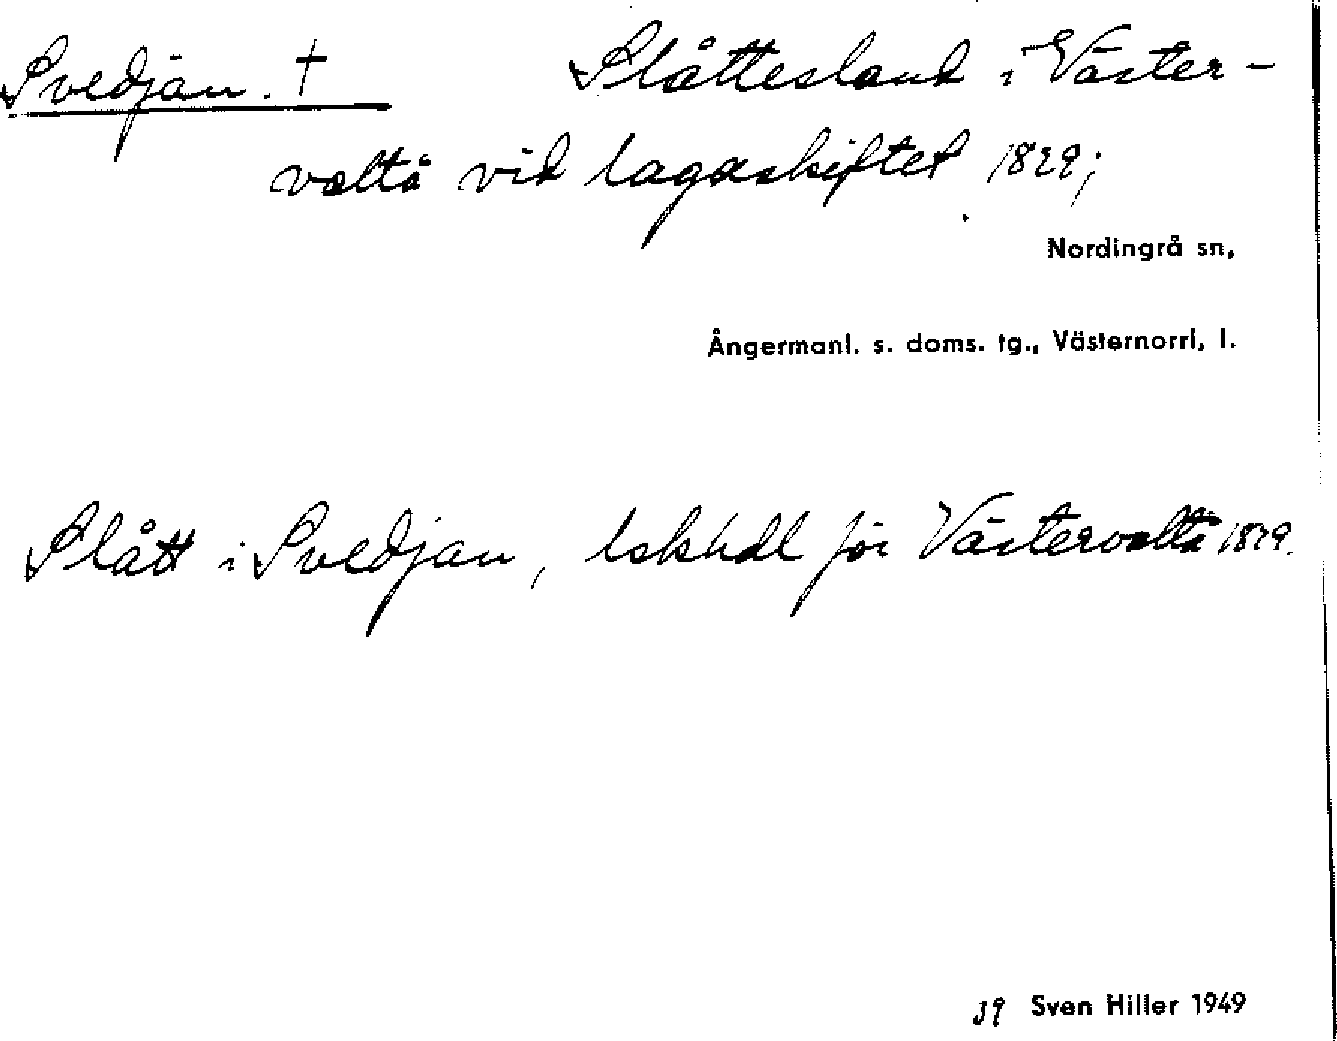 Svedjan. † Slåttesland i Väster-
valtå vid lagaskiftet 1829;
Nordingrå sn,
Ångermanl. s. doms. tg., Västernorrl, l.
Slått i Svedjan, lskhdl för Västervaltå 1829.
39 Sven Hiller 1949